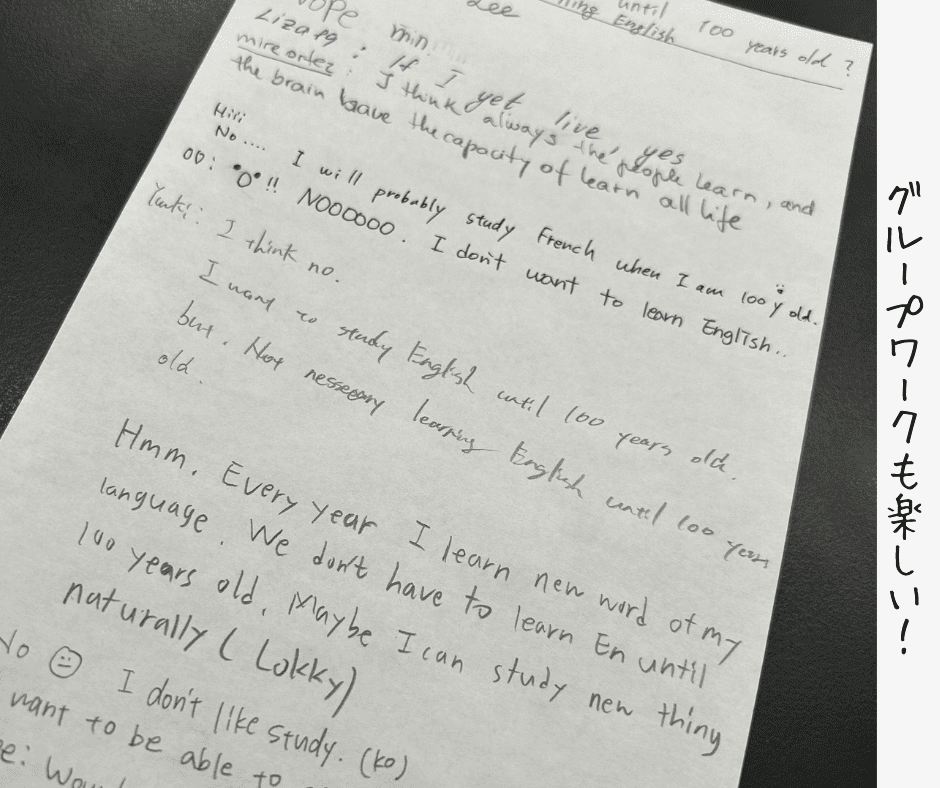 until 100 years old ?
English
min.
Lizarg : If I yet live, yes
mire ortez : I think always the people learn, and
the brain have the capacity of learn all life
Hiii
No.... I will probably study French when I am 100 y old.
OO: "O"!! NOOOOOO. I don't want to learn English..
Yuuki: I think no.
I want to study English until 100 years old.
but. Not nessecary learning English until 100 years
old.
Hmm. Every year I learn new word of my
language. We don't have to learn En until
100 years old. Maybe I can study new thing
naturally (Lokky)
No I don't like study. (ko)
want to be able to
グループワークも楽しい！